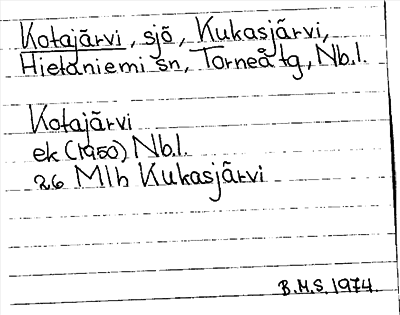 Kotajärvi, sjö, Kukasjärvi,
Hietaniemi sn, Torneå tg, Nb.l.
Kotajärvi
ek (1950) Nb.l.
26 Mlh Kukasjärvi
B.M.S. 1974